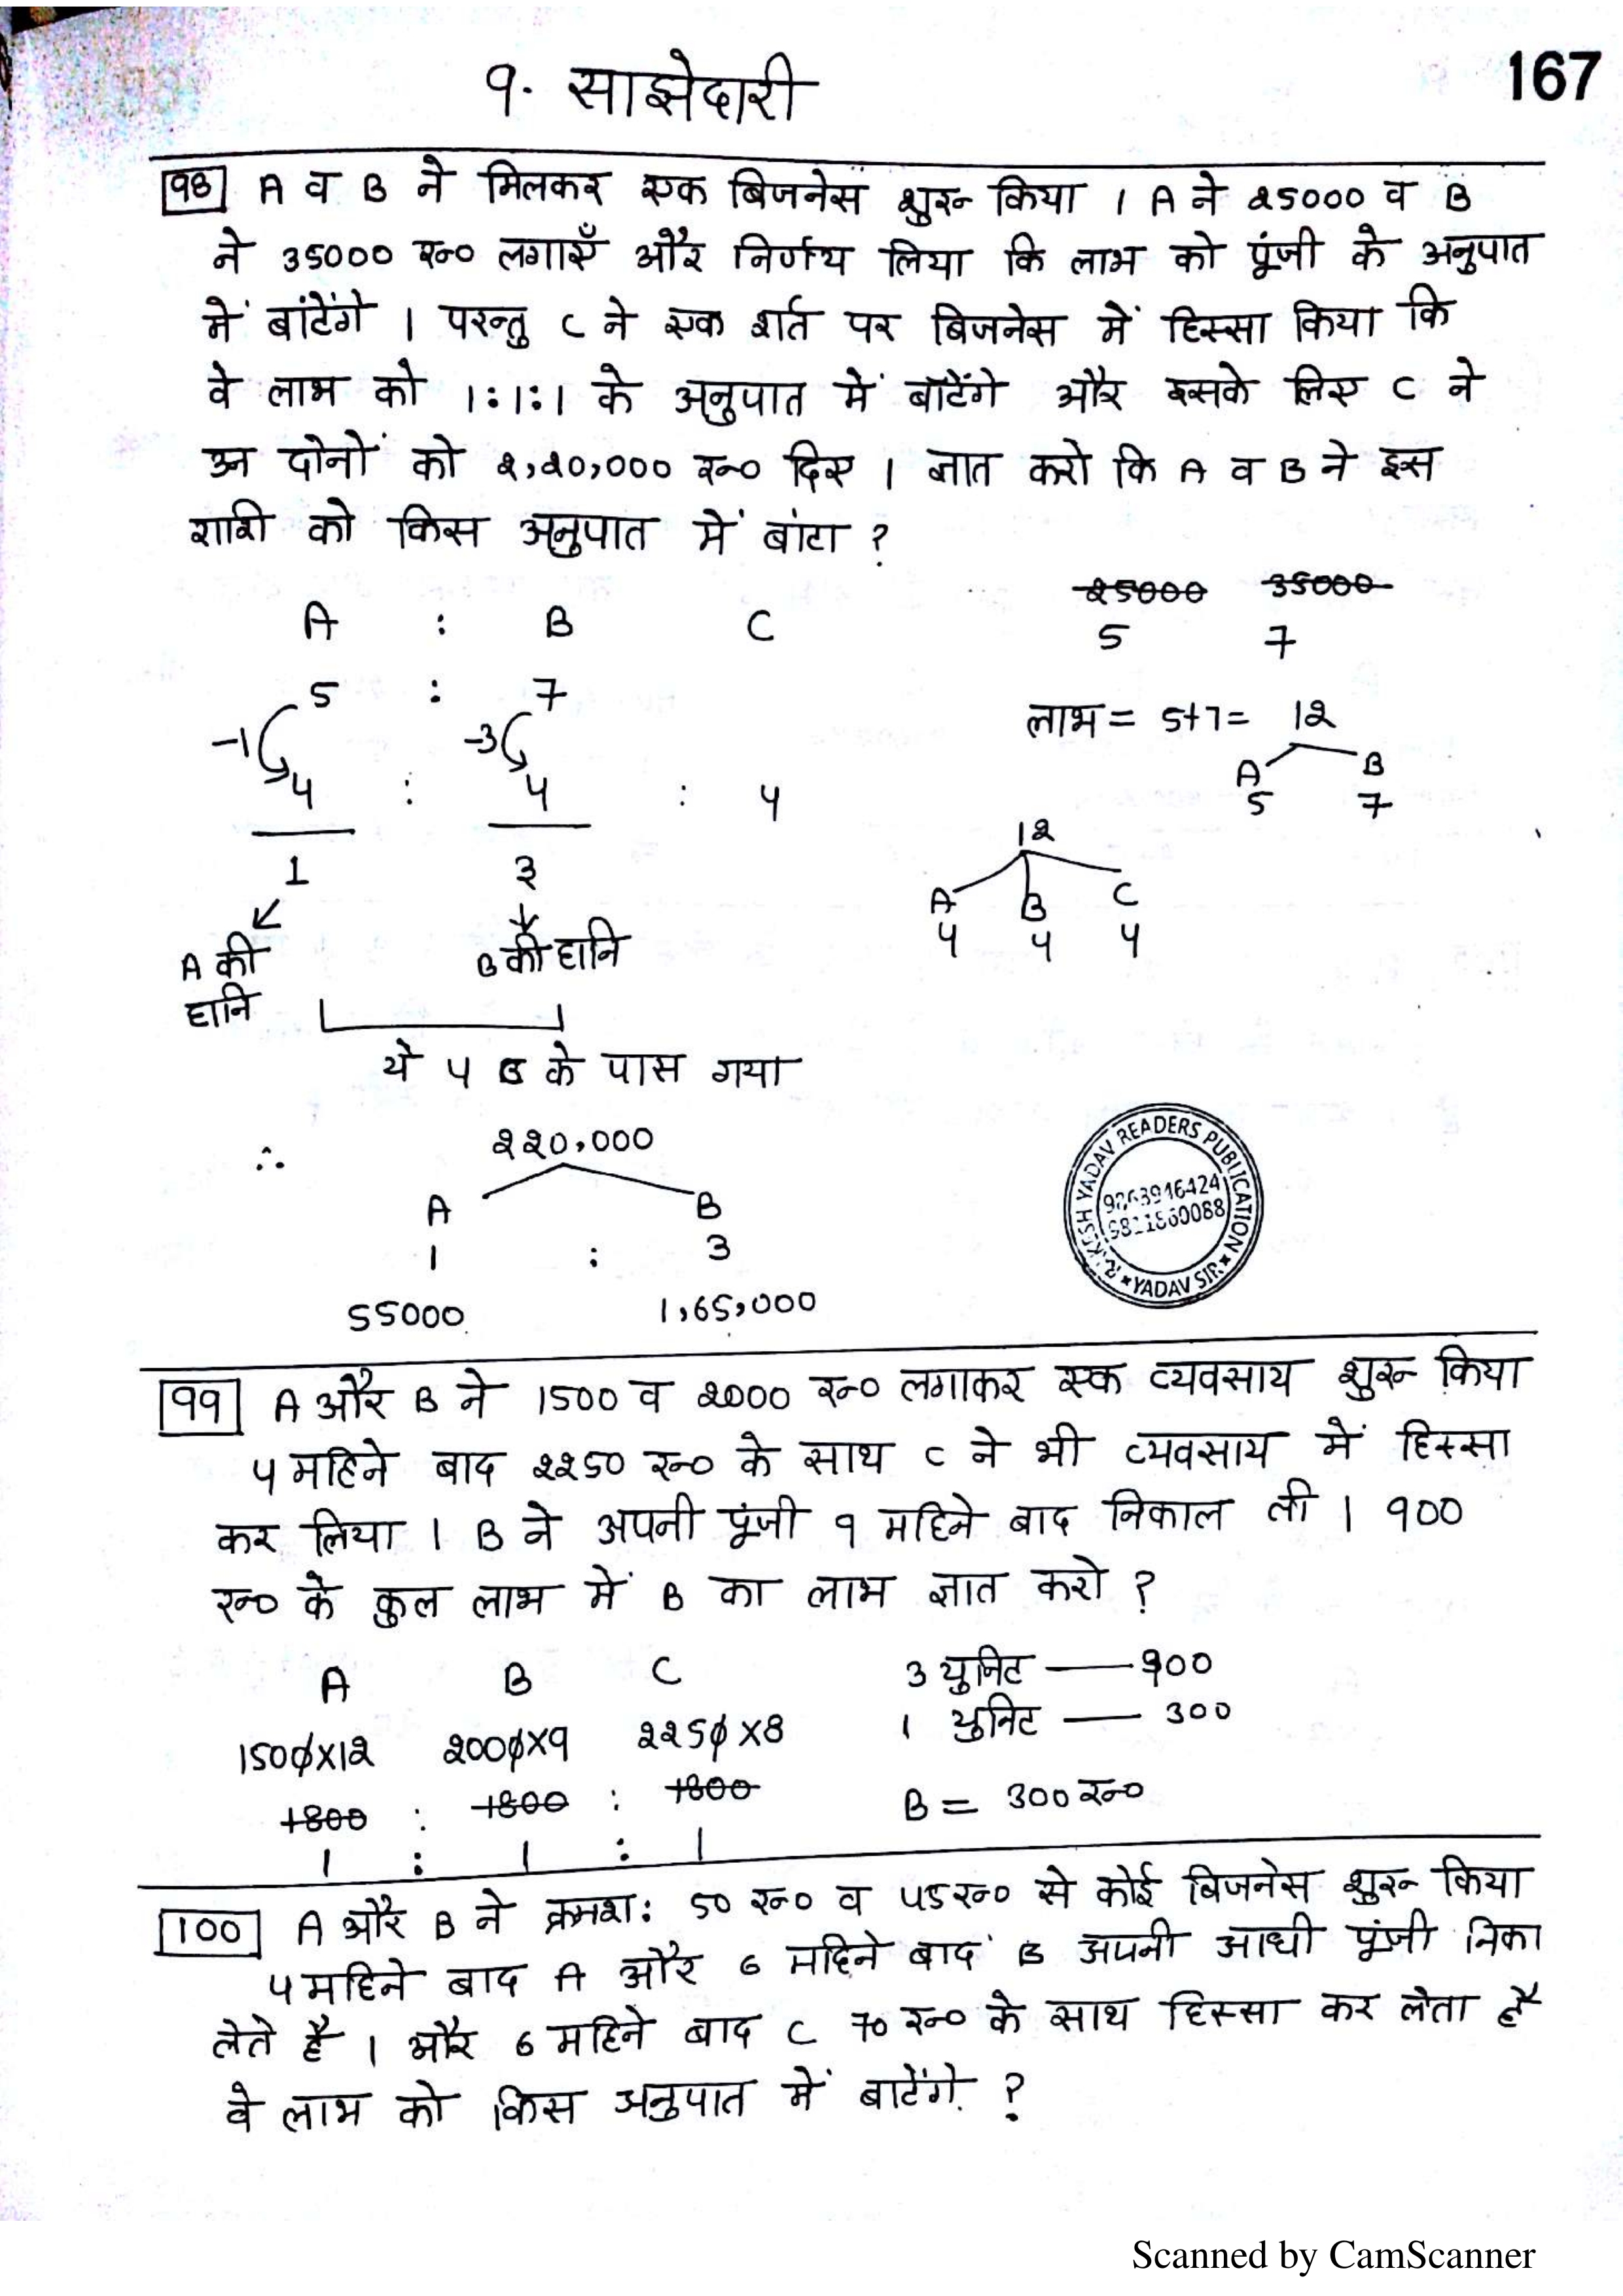 9. साझेदारी
167
98 A व B ने मिलकर एक बिजनेस शुरू किया । A ने 25000 व B
ने 35000 रू० लगाएँ और निर्णय लिया कि लाभ को पूंजी के अनुपात
में बांटेंगे । परन्तु C ने एक शर्त पर बिजनेस में हिस्सा किया कि
वे लाभ को 1:1:1 के अनुपात में बाँटेंगे और इसके लिए C ने
उन दोनों को 2,20,000 रू० दिए । ज्ञात करो कि A व B ने इस
राशी को किस अनुपात में बांटा ?
A : B C
25000 35000
5 7
5 : 7
-1 -3
4 : 4 : 4
1 3
A की हानि
B की हानि
ये 4 C के पास गया
लाभ = 5+7 = 12
A B
5 7
12
A B C
4 4 4
∴ 220,000
A B
1 : 3
55000 1,65,000
RAKESH YADAV READERS PUBLICATION
YADAV SIR
99 A और B ने 1500 व 2000 रू० लगाकर एक व्यवसाय शुरू किया
4 महिने बाद 2250 रू० के साथ C ने भी व्यवसाय में हिस्सा
कर लिया । B ने अपनी पूंजी 9 महिने बाद निकाल ली । 900
रू० के कुल लाभ में B का लाभ ज्ञात करो ?
A B C
1500X12 2000X9 2250X8
1800 : 1800 : 1800
1 : 1 : 1
3 युनिट — 900
1 युनिट — 300
B = 300 रू०
100 A और B ने क्रमश: 50 रू० व 45 रू० से कोई बिजनेस शुरू किया
4 महिने बाद A और 6 महिने बाद B अपनी आधी पूंजी निका
लेते है । और 6 महिने बाद C 70 रू० के साथ हिस्सा कर लेता है
वे लाभ को किस अनुपात में बाटेंगे ?
Scanned by CamScanner